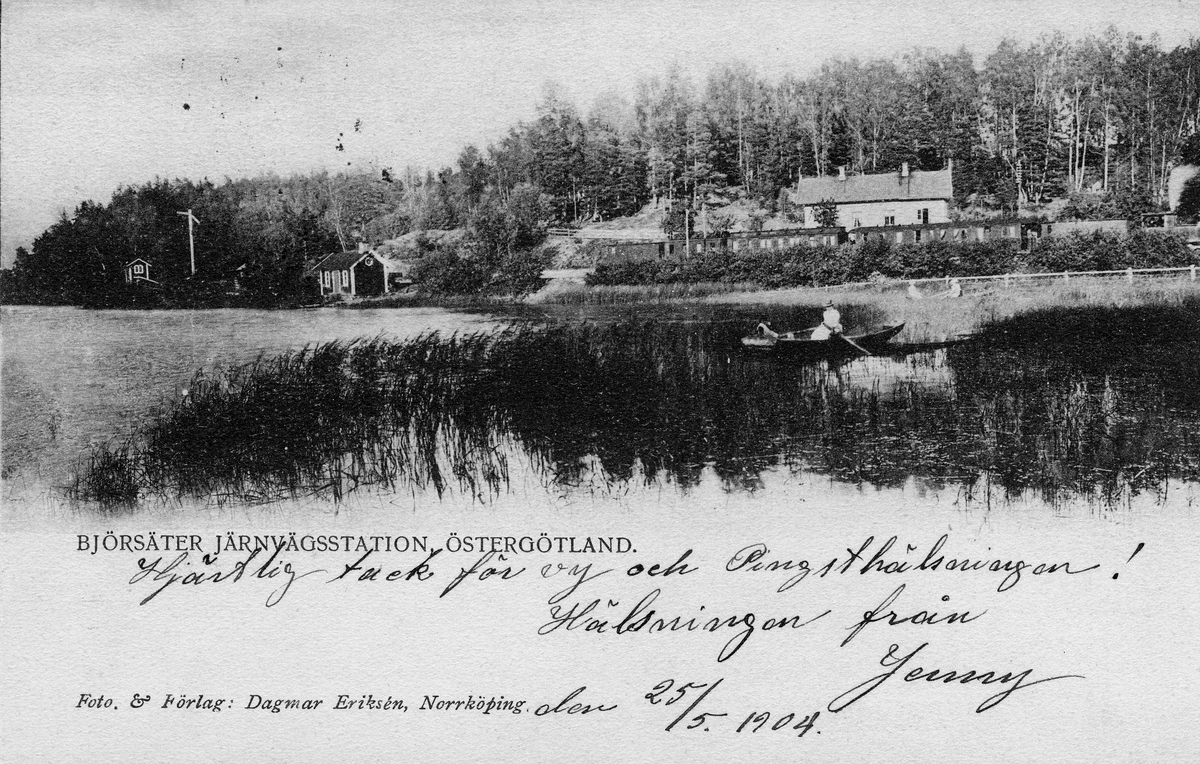 BJÖRSÄTER JÄRNVÄGSSTATION, ÖSTERGÖTLAND.
Hjärtlig tack för vy och Pingsthälsningen!
Hälsningen från
Jenny
Foto. & Förlag: Dagmar Eriksén, Norrköping.
den 25/5. 1904.